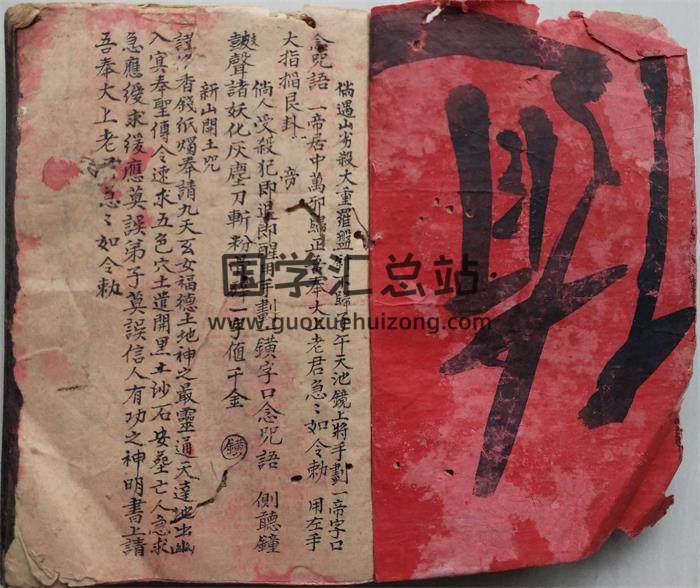 倘遇山方殺大重羅盤 歸子午天池鏡上將手劃一帝字口
念咒語 一帝居中萬邪歸正 奉大 老君急〻如令勅 用左手
大指掐艮卦 旁
倘人受殺犯即退即醒用手劃 鐄字口念咒語 側聽鐘
鼓聲諸妖化灰塵刀斬粉 碎一字值千金 鐄
新山開土咒
香錢紙燭奉請九天玄女福德土地神之最靈通天達地出幽
入冥奉聖傳令速求五色穴土道開黑土沙石安塟亡人急求
急應緩求緩應莫誤弟子莫誤信人有功之神明書上請
吾奉大上老 急〻如令勅
国学汇总站
www.guoxuehuizong.com